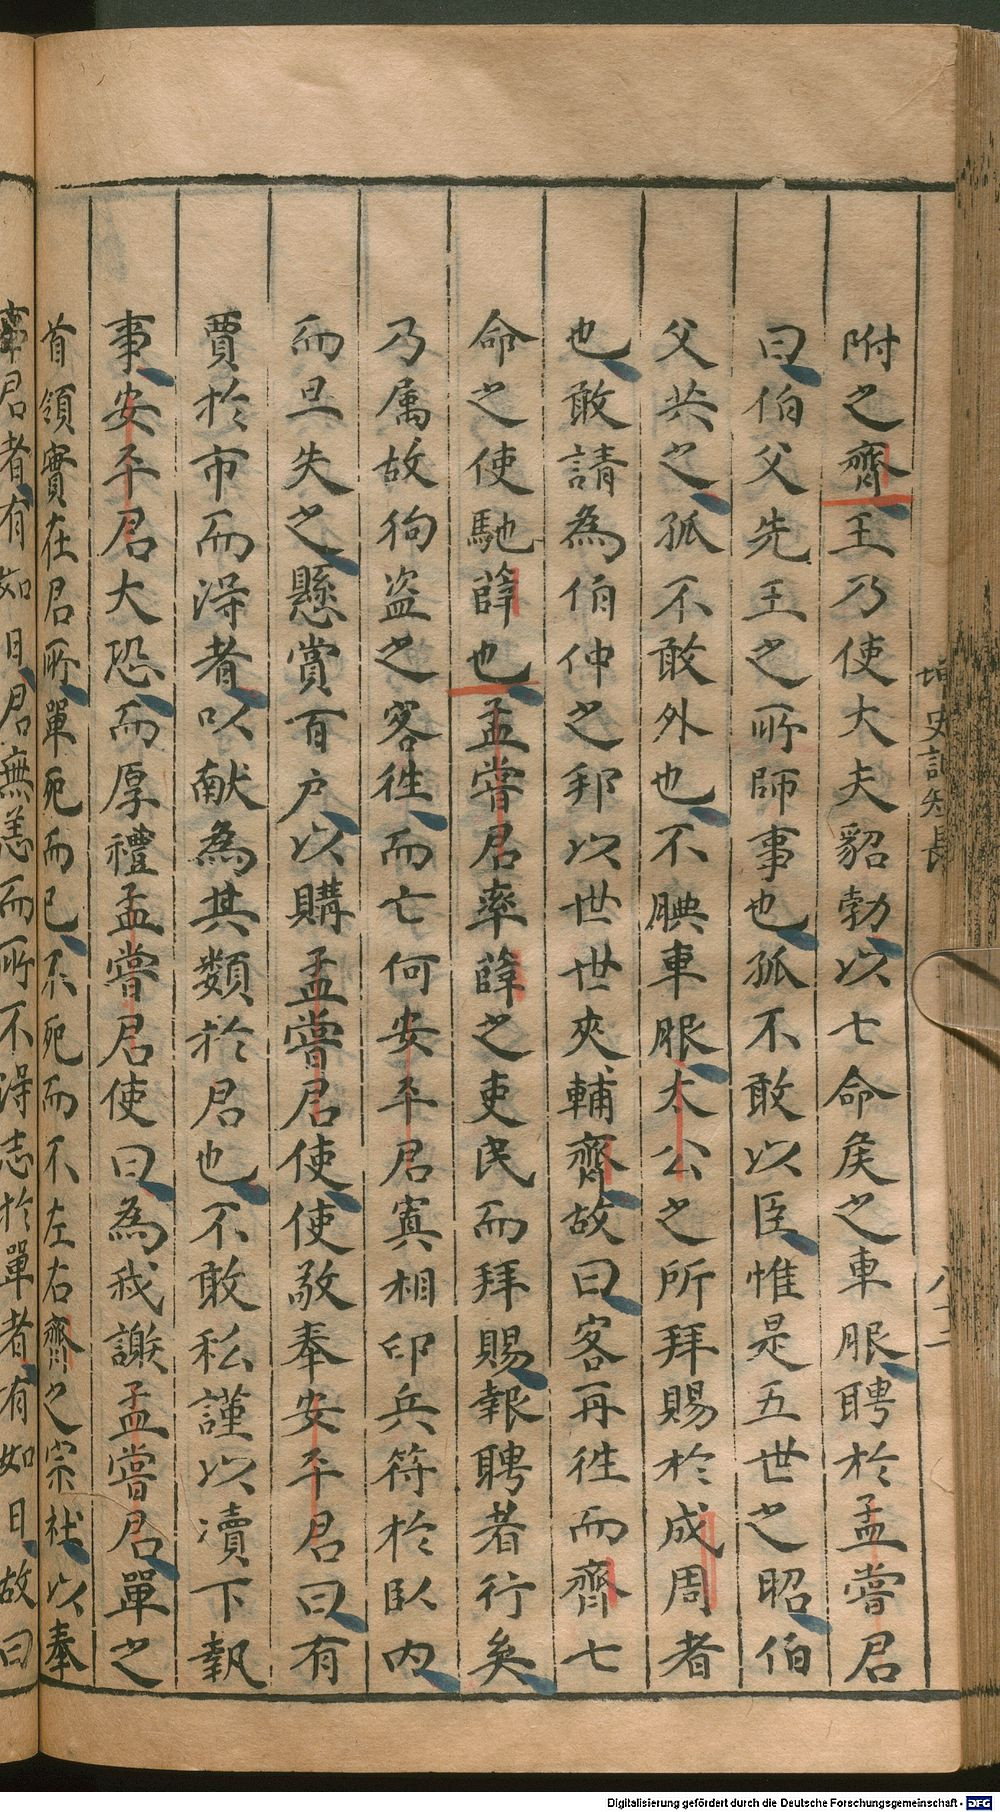 附之齊王乃使大夫貂勃以七命侯之車服聘於孟嘗君
曰伯父先王之所師事也孤不敢以臣惟是五世之昭伯
父共之孤不敢外也不腆車服太公之所拜賜於成周者
也敢請為伯仲之邦以世世夾輔齊故曰客再徃而齊七
命之使馳薛也孟嘗君率薛之吏民而拜賜報聘者行矣
乃属故狗盗之客徃而亡何安平君寘相印兵符於臥内
而旦失之懸賞百户以購孟嘗君使使敬奉安平君曰有
賈於市而淂者以献為其類於君也不敢私謹以凟下執
事安平君大恐而厚禮孟嘗君使曰為我謝孟嘗君單之
首領實在君所單死而已不死而不左右齊之宗社以奉
事君者有如日君無恙而所不淂志於單者有如日故曰
史記短長
八十二
Digitalisierung gefördert durch die Deutsche Forschungsgemeinschaft - DFG